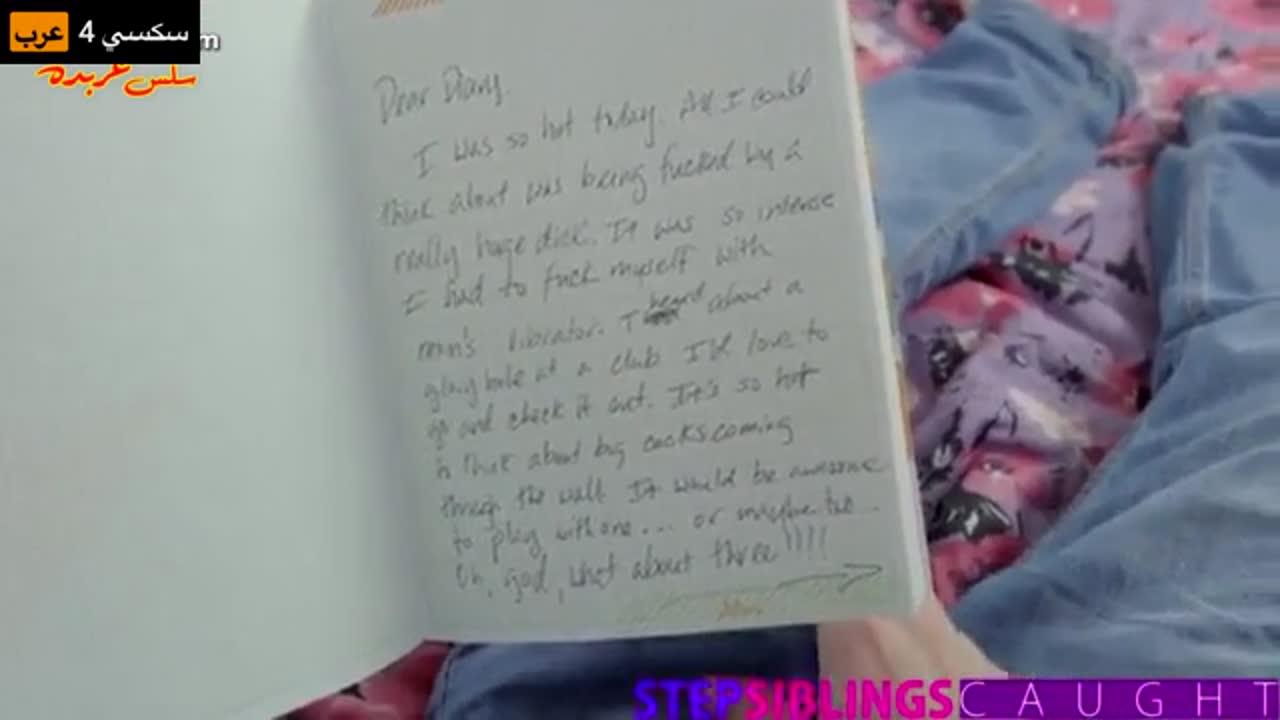 سكسي 4 عرب
m
سكس عربده
Dear Diary.
I was so hot today. All I could
think about was being fucked by a
really huge dick. It was so intense
I had to fuck myself with
mom's vibrator. I heard about a
glory hole at a club I'd love to
go and check it out. It's so hot
to think about big cocks coming
through the wall It would be awesome
to play with one... or maybe two...
Oh, god, what about three!!!!
STEPSIBLINGSCAUGHT